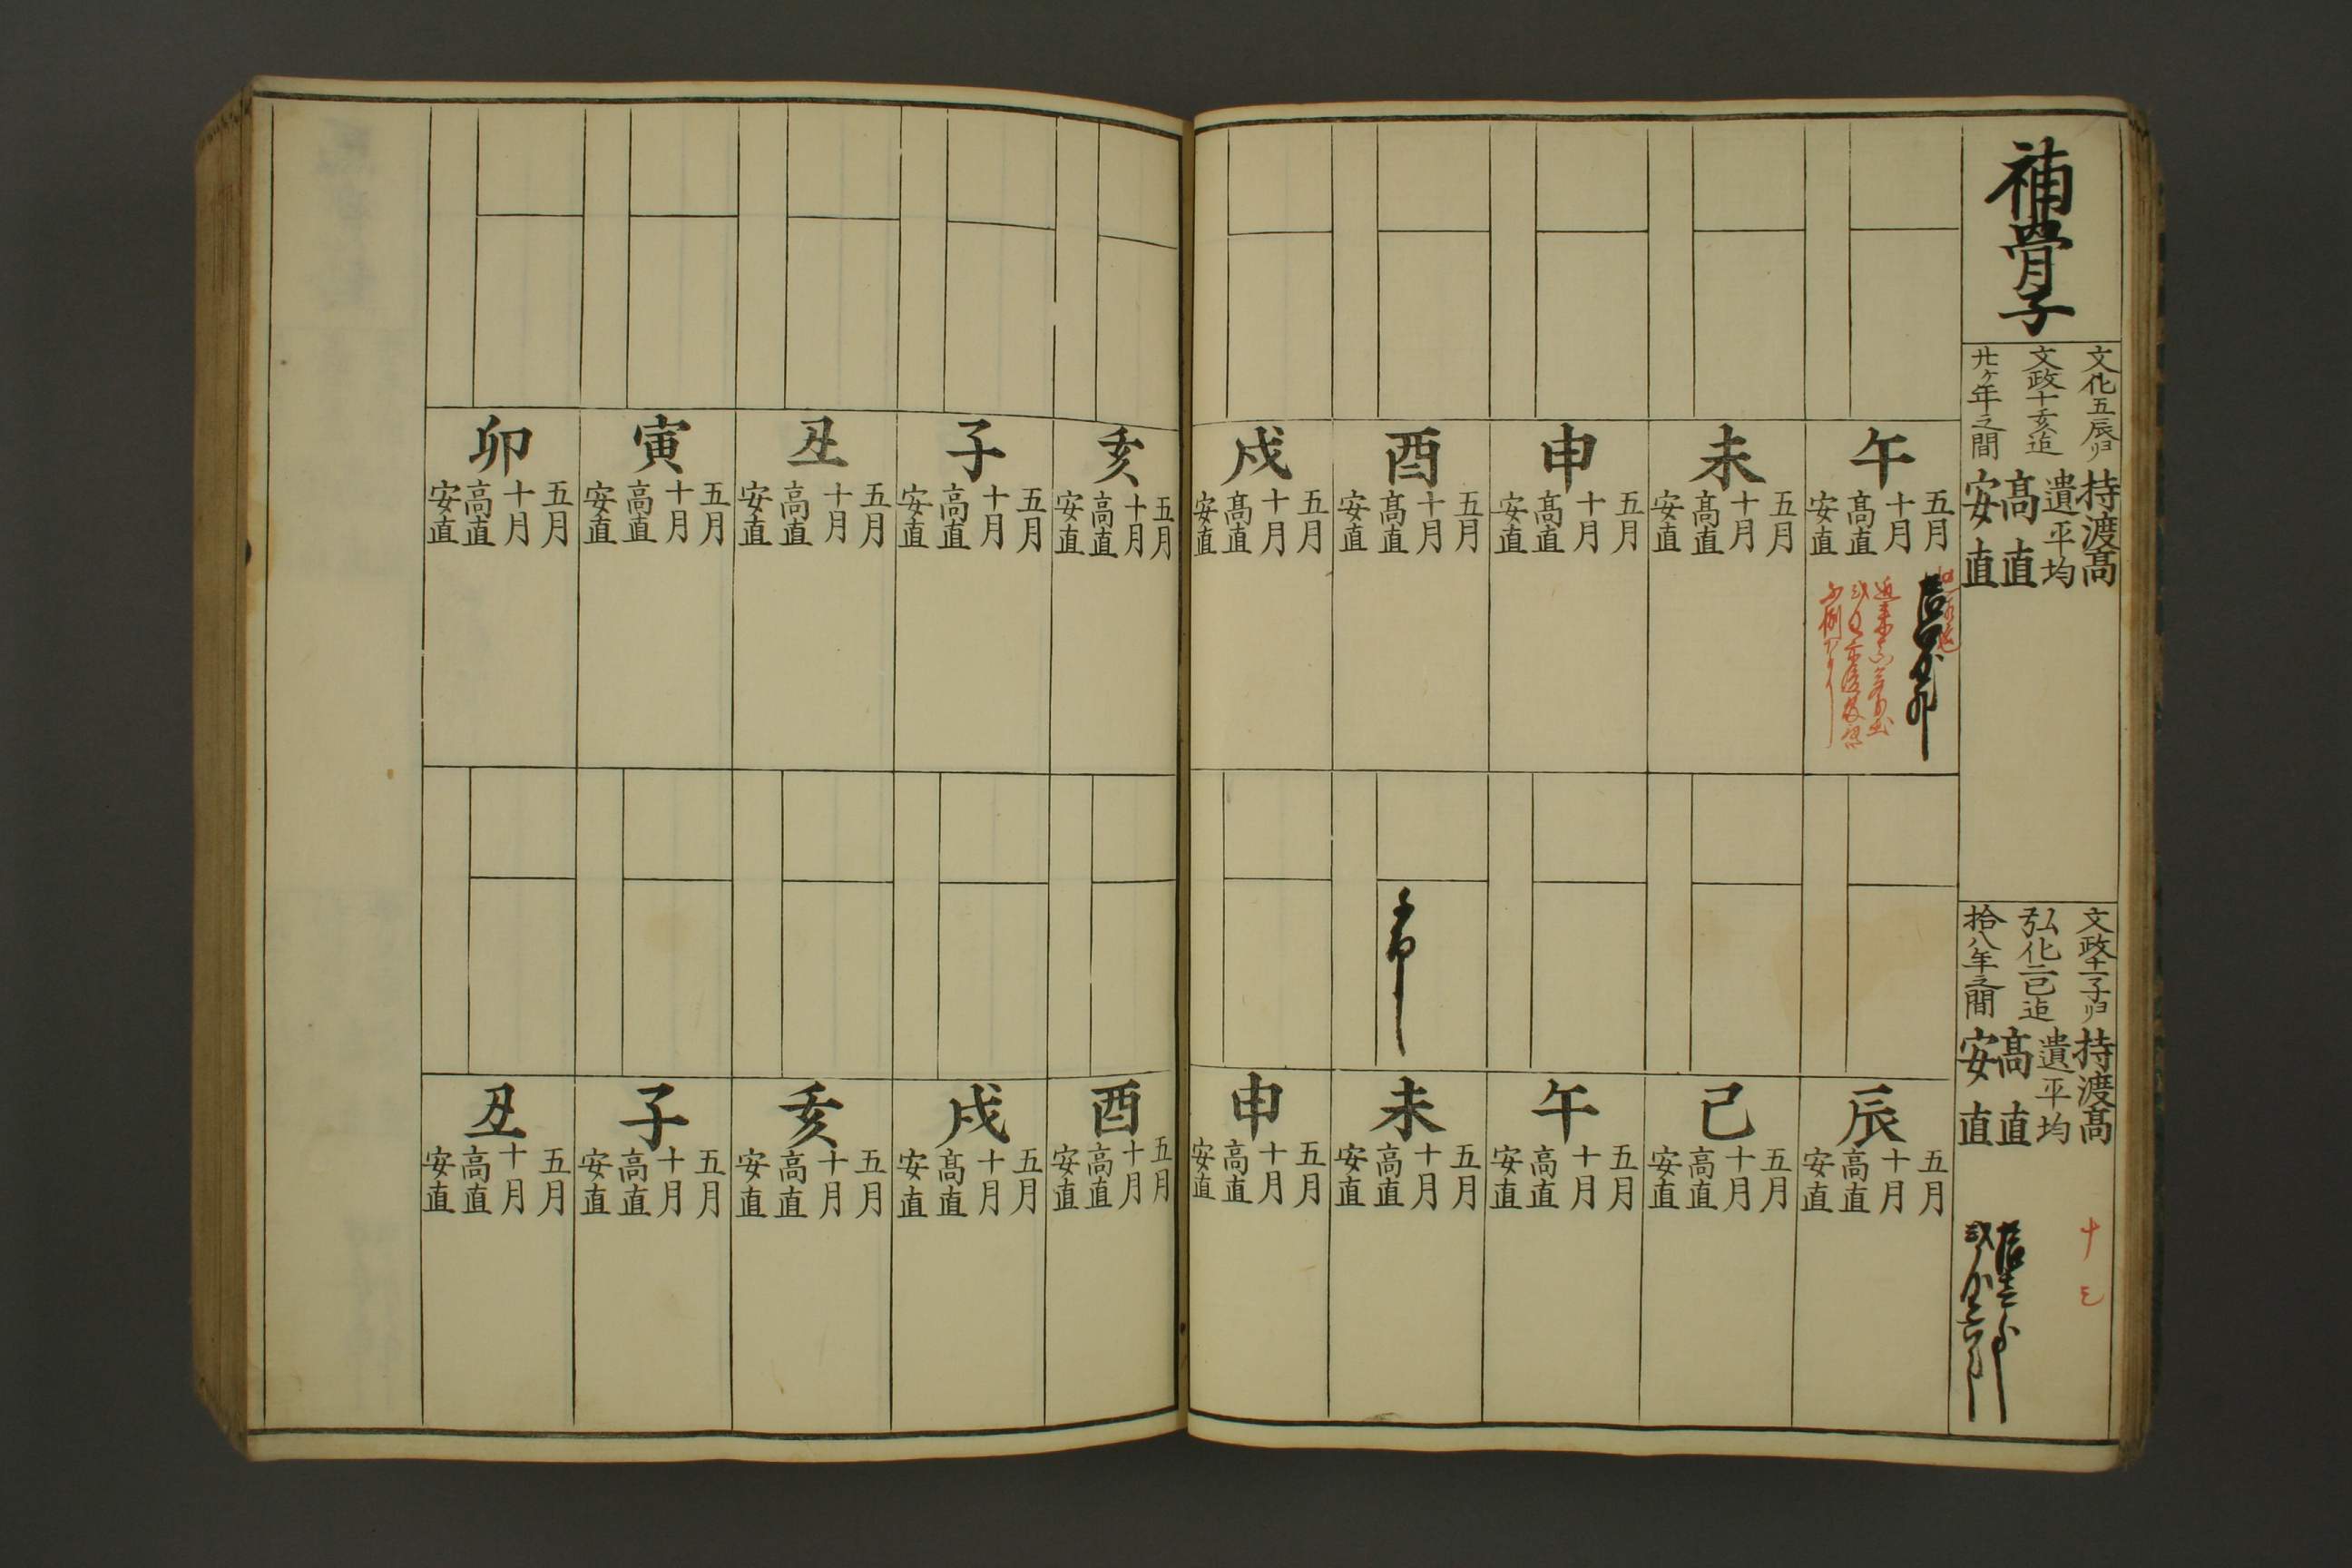 補骨子
文化五辰ヨリ
文政十亥迠
廿ヶ年之間
持渡髙
遣平均
髙直
安直
文政十一子ヨリ
弘化二巳迠
拾八年之間
持渡髙
遣平均
髙直
安直
十
午
五月
十月
髙直
安直
未
五月
十月
髙直
安直
申
五月
十月
髙直
安直
酉
五月
十月
髙直
安直
戌
五月
十月
髙直
安直
亥
五月
十月
高直
安直
子
五月
十月
高直
安直
丑
五月
十月
高直
安直
寅
五月
十月
高直
安直
卯
五月
十月
高直
安直
辰
五月
十月
高直
安直
巳
五月
十月
高直
安直
午
五月
十月
高直
安直
未
五月
十月
高直
安直
申
五月
十月
高直
安直
酉
五月
十月
高直
安直
戌
五月
十月
髙直
安直
亥
五月
十月
高直
安直
子
五月
十月
高直
安直
丑
五月
十月
高直
安直